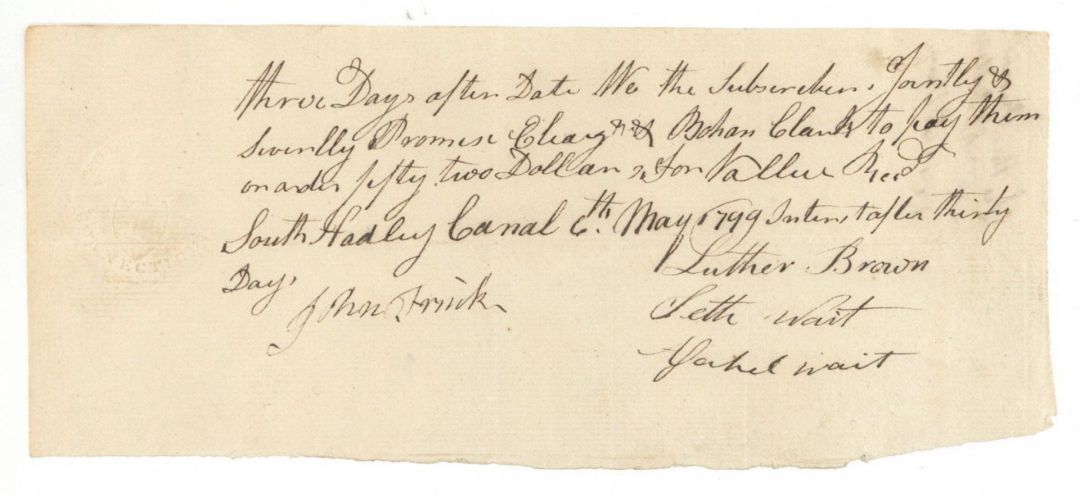 three Days after Date We the Subscribers Jointly &
severilly Promise & Bohan Clark to pay them
on order fifty two Dollars for Vallue Recd
South Hadley Canal 6th. May 1799 Interest after thirty
Days
Luther Brown
John Frink
Seth Wait
wait